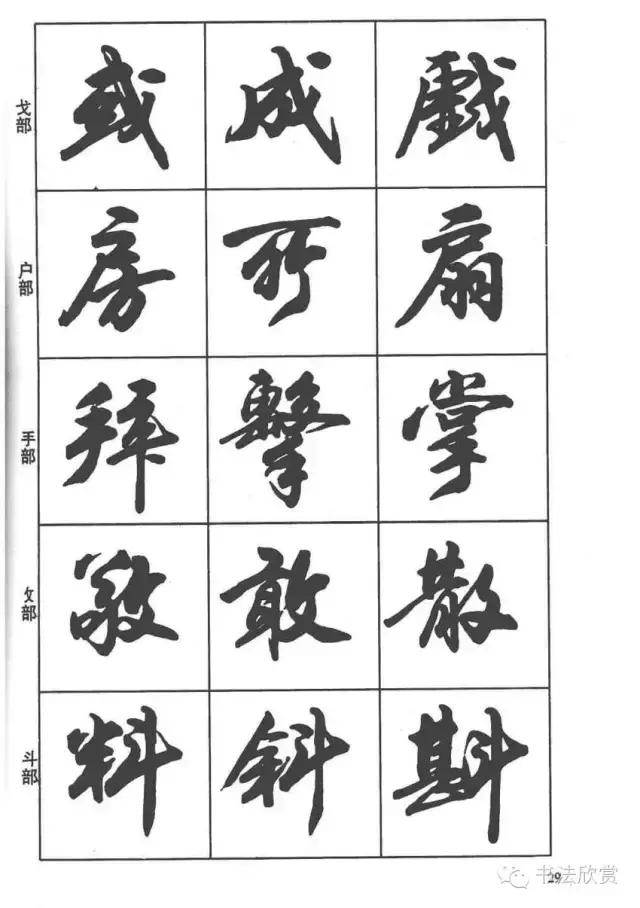 戈部 或 成 戲
户部 房 所 扇
手部 拜 擊 掌
攵部 敬 敢 散
斗部 料 斜 斟
29
书法欣赏